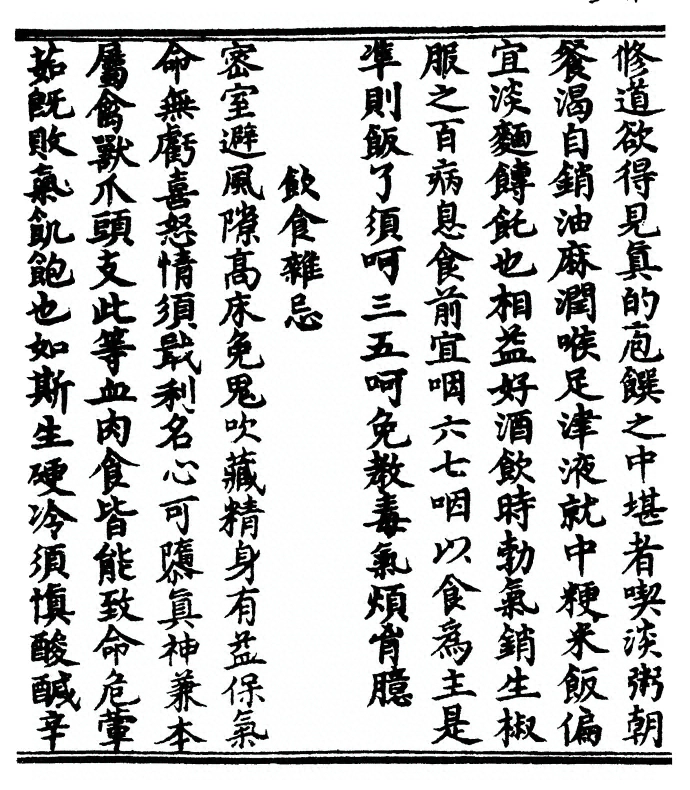 修道欲得見眞的庖饌之中堪者喫淡粥朝
餐渴自銷油麻潤喉足津液就中粳米飯偏
宜淡麵餺飥也相益好酒飲時勃氣銷生椒
服之百病息食前宜咽六七咽以食爲主是
準則飯了須呵三五呵免教毒氣煩胷臆
飲食雜忌
密室避風隙高床免鬼吹藏精身有益保氣
命無虧喜怒情須戢利名心可隳眞神兼本
屬禽獸爪頭支此等血肉食皆能致命危葷
茹旣敗氣飢飽也如斯生硬冷須愼酸醎辛